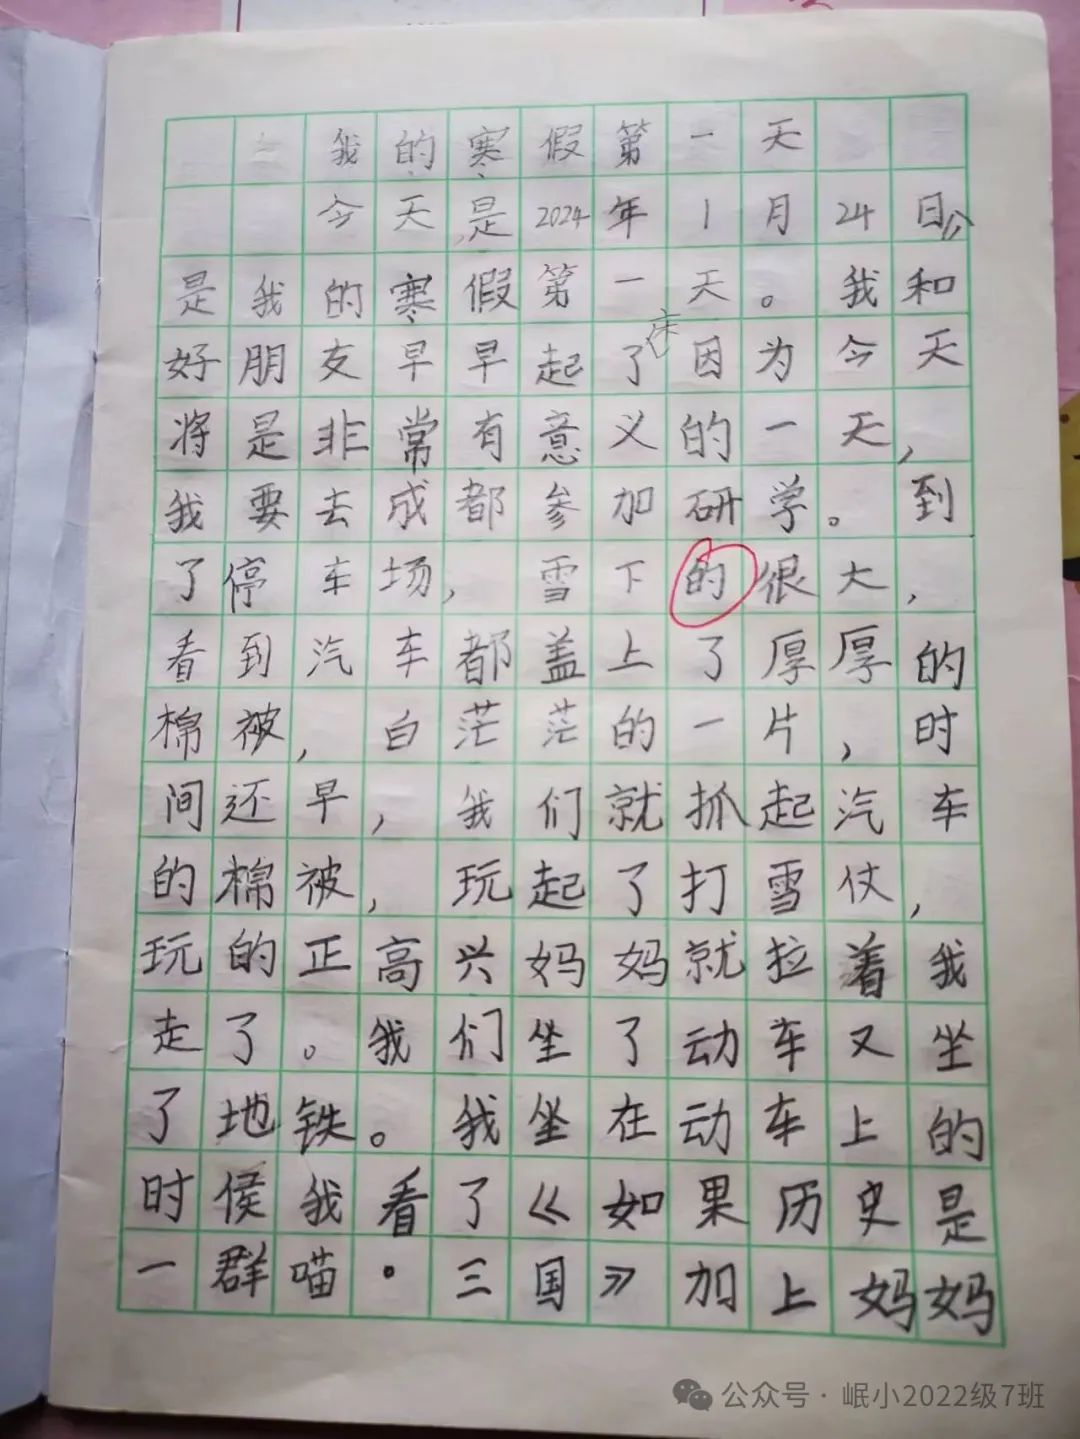 我的寒假第一天
今天是2024年1月24日
是我的寒假第一天。我和
好朋友早早起了床因为今天
将是非常有意义的一天，
我要去成都参加研学。到
了停车场，雪下的很大，
看到汽车都盖上了厚厚的
棉被，白茫茫的一片，时
间还早，我们就抓起汽车
的棉被，玩起了打雪仗，
玩的正高兴妈妈就拉着我
走了。我们坐了动车又坐
了地铁。我坐在动车上的
时侯我看了《如果历史是
一群喵·三国》加上妈妈
公众号·岷小2022级7班